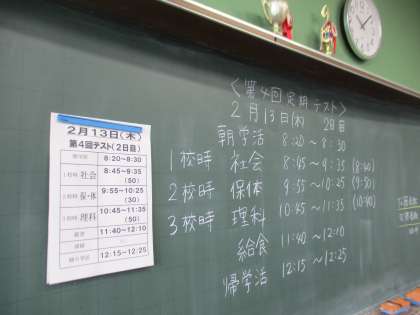 2月13日(木)
第4回テスト(2日目)
8:20~8:30
1校時 社会 8:45~9:35
(50)
2校時 保・体 9:55~10:25
(30)
3校時 理科 10:45~11:35
(50)
給食 11:40~12:10
12:15~12:25
〈第4回定期テスト〉
2月13日(木) 2日目
朝学活 8:20~8:30
1校時 社会 8:45~9:35 (8:40)
2校時 保体 9:55~10:25 (9:50)
3校時 理科 10:45~11:35 (10:40)
給食 11:40~12:10
帰学活 12:15~12:25